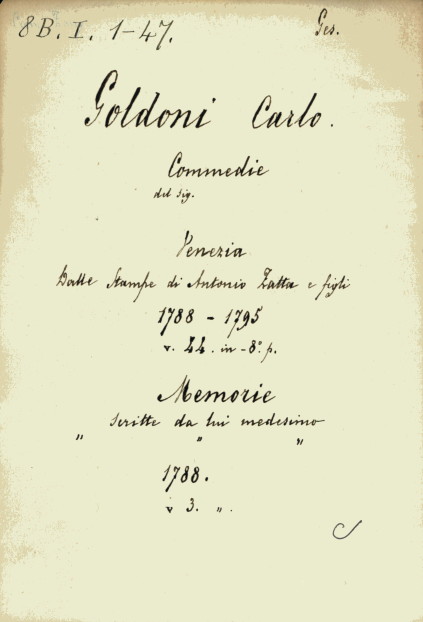 8 B. I. 1-47.
Ges.
Goldoni Carlo.
Commedie
del Sig.
Venezia
Dalle Stampe di Antonio Zatta e figli
1788 - 1795
v. 44. in-8°. p.
Memorie
scritte da lui medesimo
" " "
1788.
v 3. ".